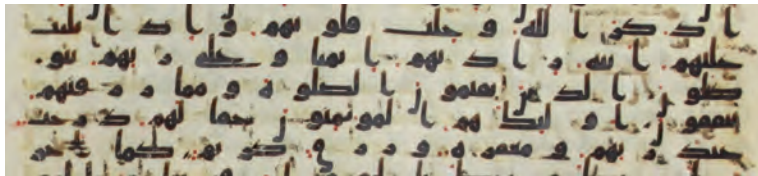 ا ذكر الله وجلت قلوبهم واذا تليت
عليهم ايته زادتهم ايمنا وعلى ربهم يتو
كلون الذين يقيمون الصلوه ومما رزقنهم
ينفقون اوليك هم المومنون حقا لهم درجت
عند ربهم ومغفره ورزق كريم كما اخر